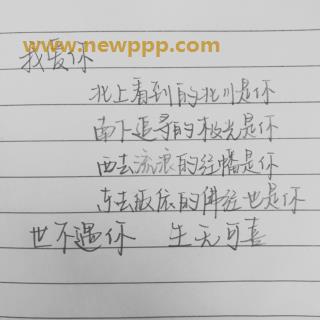 www.newppp.com
我爱你
北上看到的北川是你
南下追寻的极光是你
西去流浪的经幡是你
东去皈依的佛经也是你
世不遇你 生无可喜